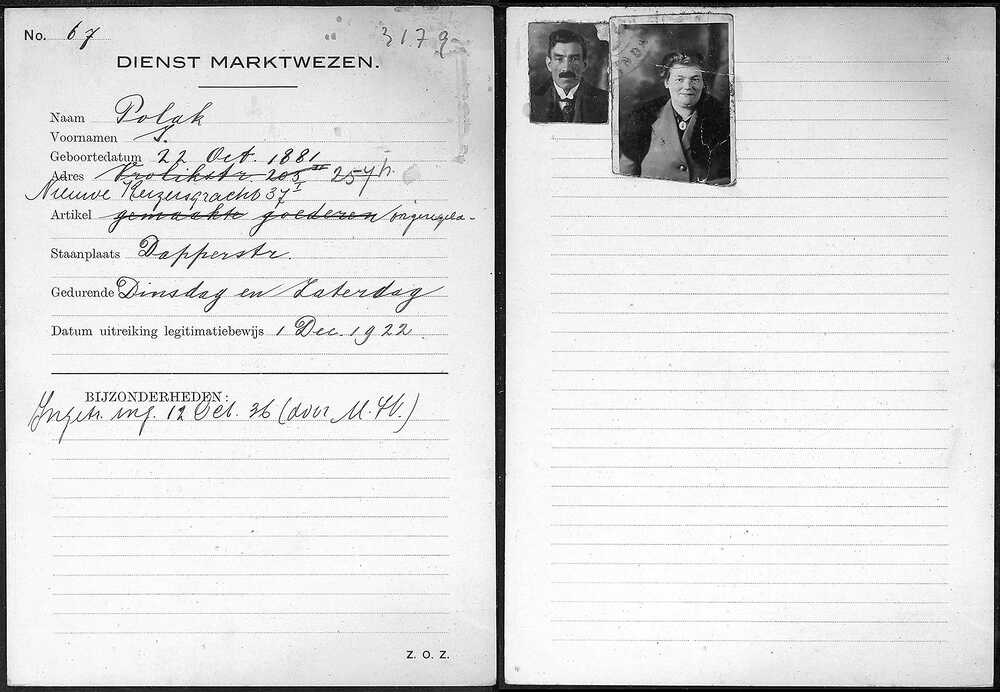 No. 67 3179
DIENST MARKTWEZEN.
Naam Polak
Voornamen
Geboortedatum 22 Oct. 1881
Adres Vrolikstr. 203 III 257
Nieuwe Keizersgracht 37 I
Artikel gemaakte goederen ongeregeld-
Staanplaats Dapperstr.
Gedurende Dinsdag en Zaterdag
Datum uitreiking legitimatiebewijs 1 Dec. 1922.
BIJZONDERHEDEN:
Ingetr. ing. 12 Oct. 36 (door M.W.)
Z. O. Z.